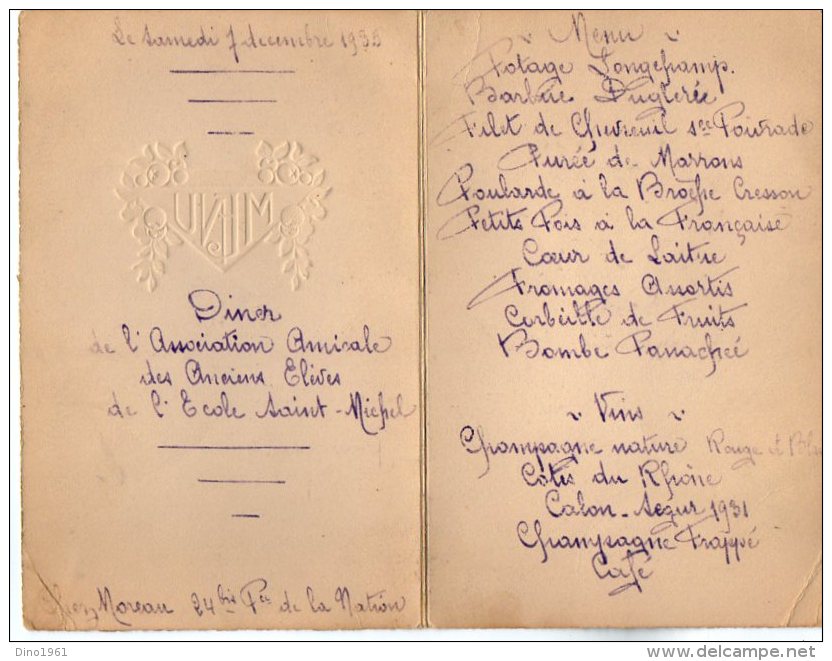 Le Samedi 7 decembre 1935
Diner
de l'Association Amicale
des Anciens Elèves
de l'Ecole Saint-Michel
Chez Moreau 24bis Pce de la Nation
Menu
Potage Longchamp.
Barbue Duglerée
Filet de Chevreuil sce Poivrade
Purée de Marrons
Poularde à la Broche Cresson
Petits Pois à la Française
Cœur de Laitue
Fromages Assortis
Corbeille de Fruits
Bombe Panachée
Vins
Champagne nature Rouge et Bla
Côtes du Rhône
Calon-Segur 1931
Champagne Frappé
Café
Dino1961
www.delcampe.net